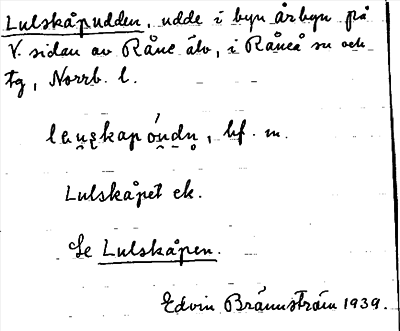 Lulskåpudden, udde i byn Årbyn på
V. sidan av Råne älv, i Råneå sn och
tg, Norrb. l.
lau̯skapóndn̥, bf. m.
Lulskåpet ek.
Se Lulskåpen.
Edvin Brännström 1939.